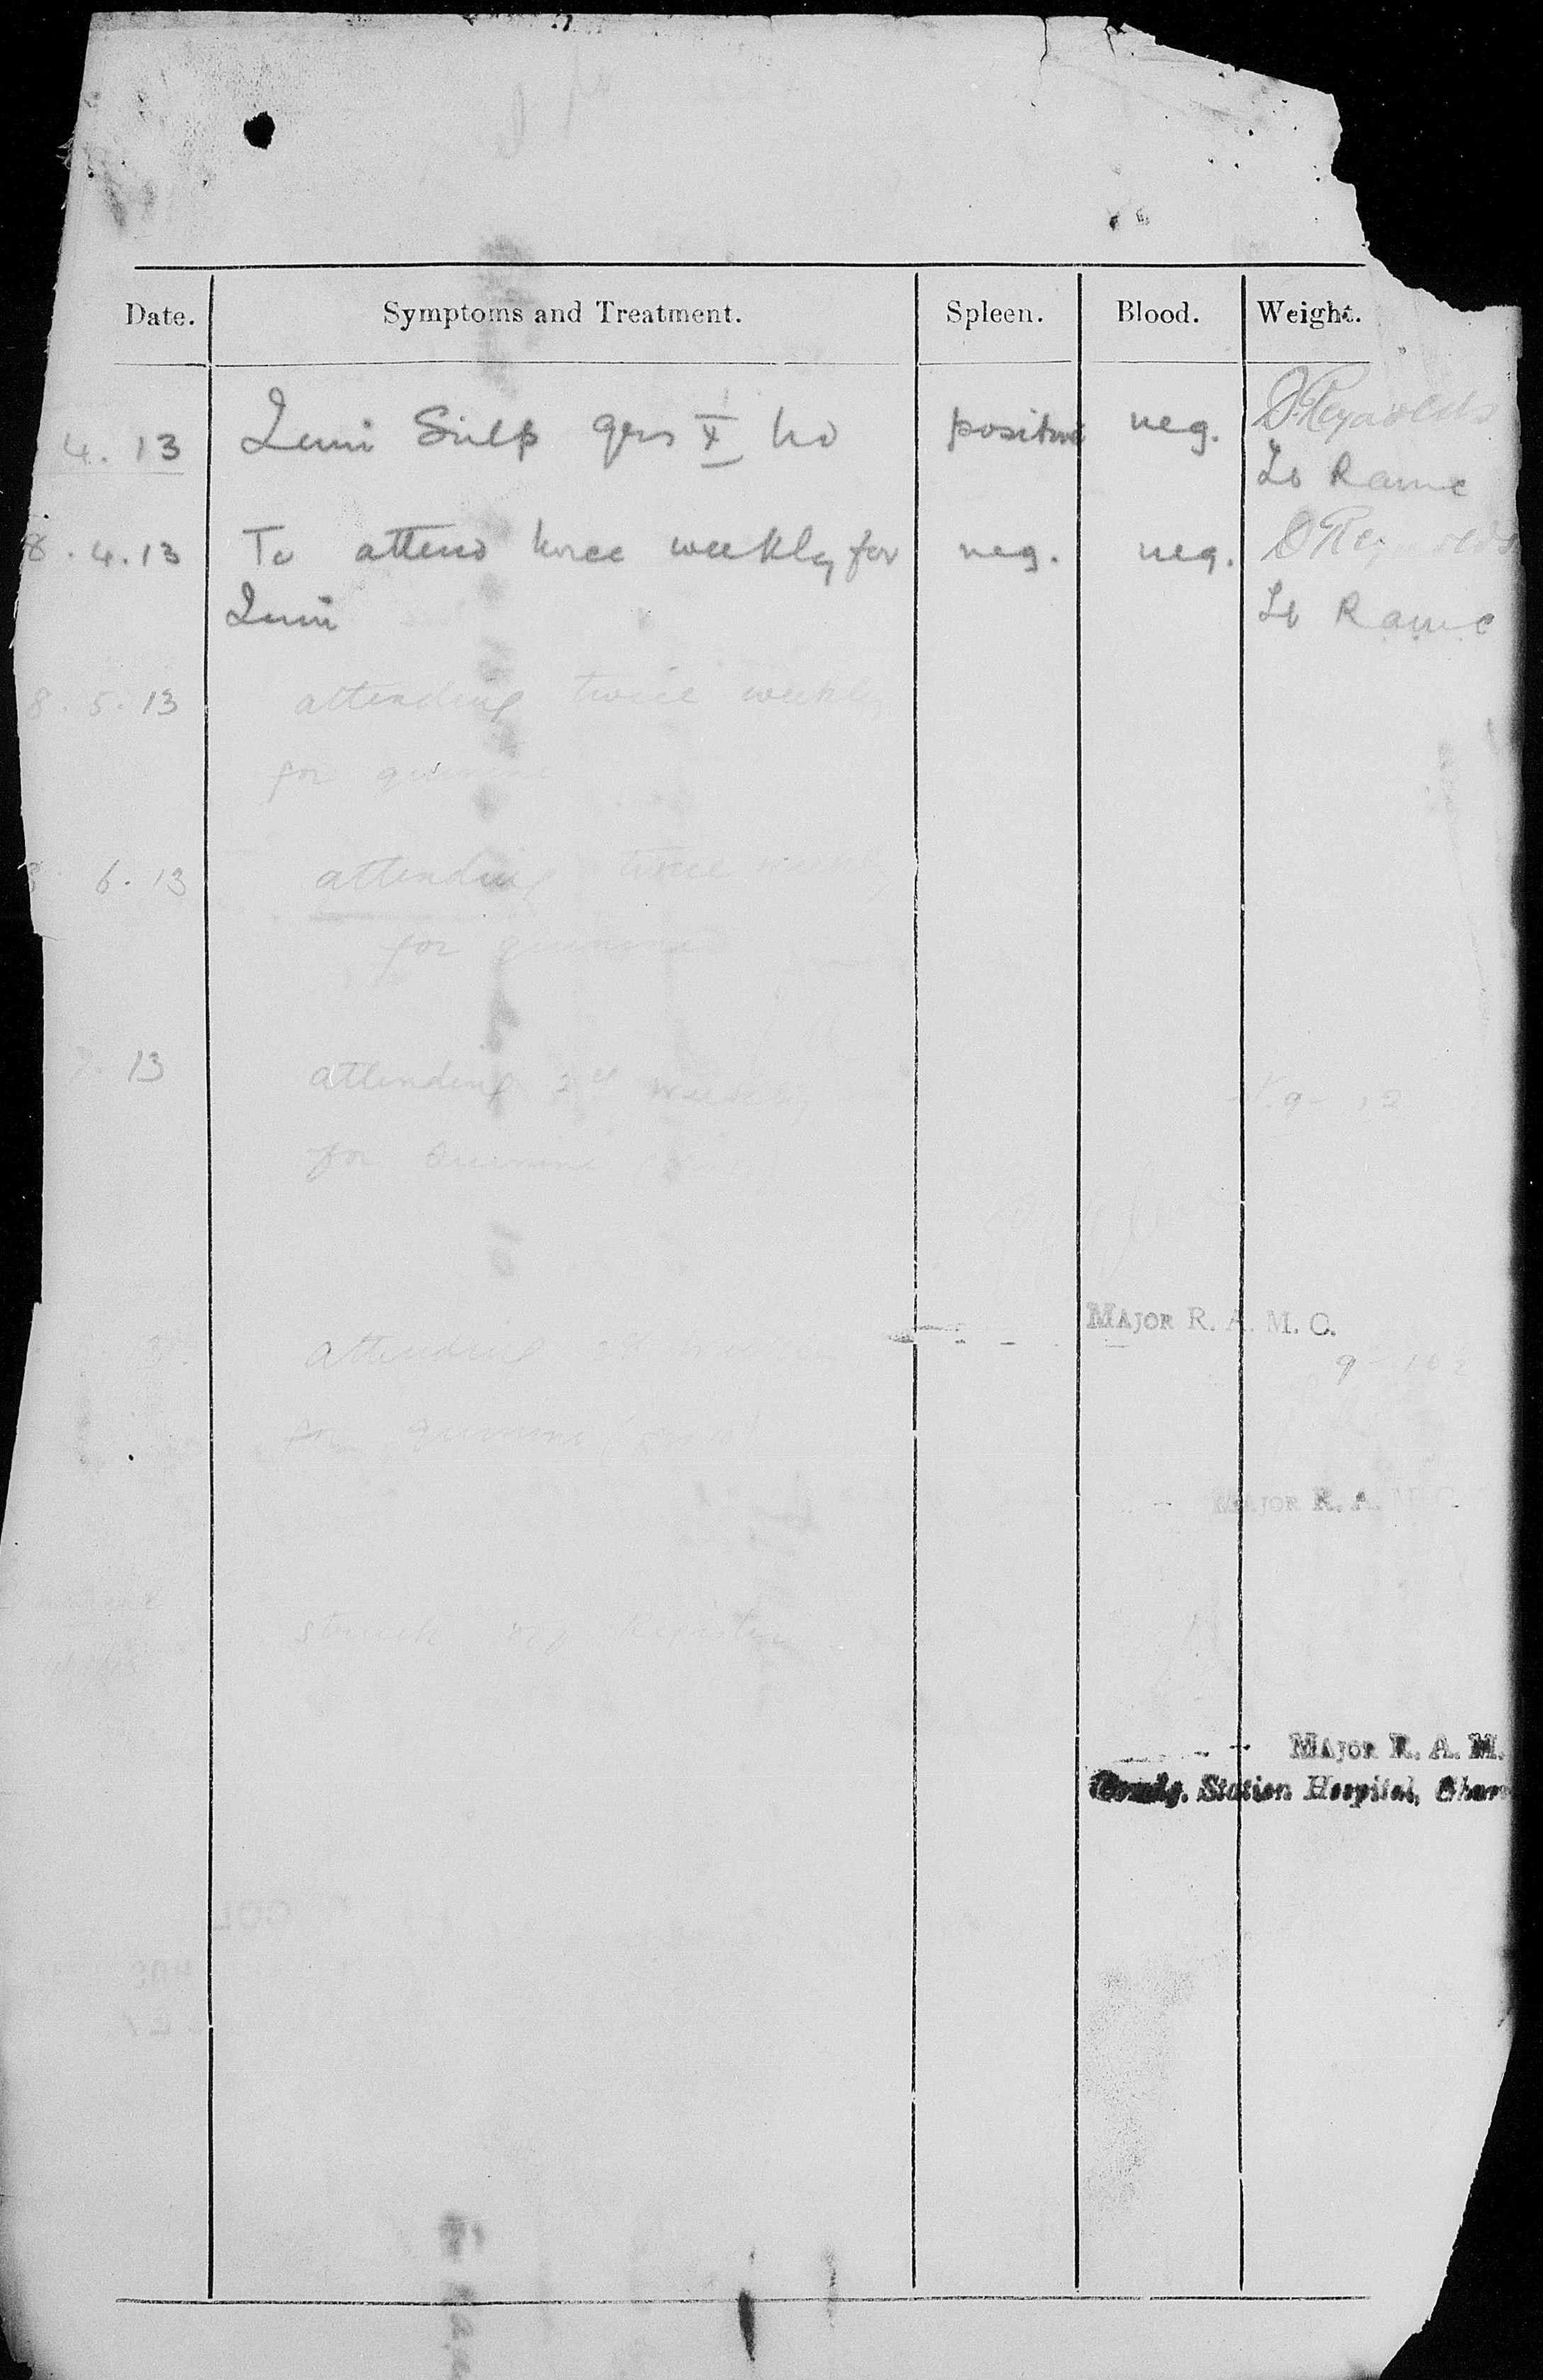 Date. Symptoms and Treatment. Spleen. Blood. Weight.
4. 13 Quin Sulp grs X positive neg. D Reynolds
Lt Ramc
8. 4. 13 To attend twice weekly for neg. neg. D Reynolds
Quin Lt Ramc
8. 5. 13 attending twice weekly
for quinine
6. 13 attending twice weekly
for quinine
7. 13 attending weekly
for Quinine
MAJOR R. A. M. C.
attending
for quinine
MAJOR R. A. M. C.
struck off Register
MAJOR R. A. M.
Comdg. Station Hospital,